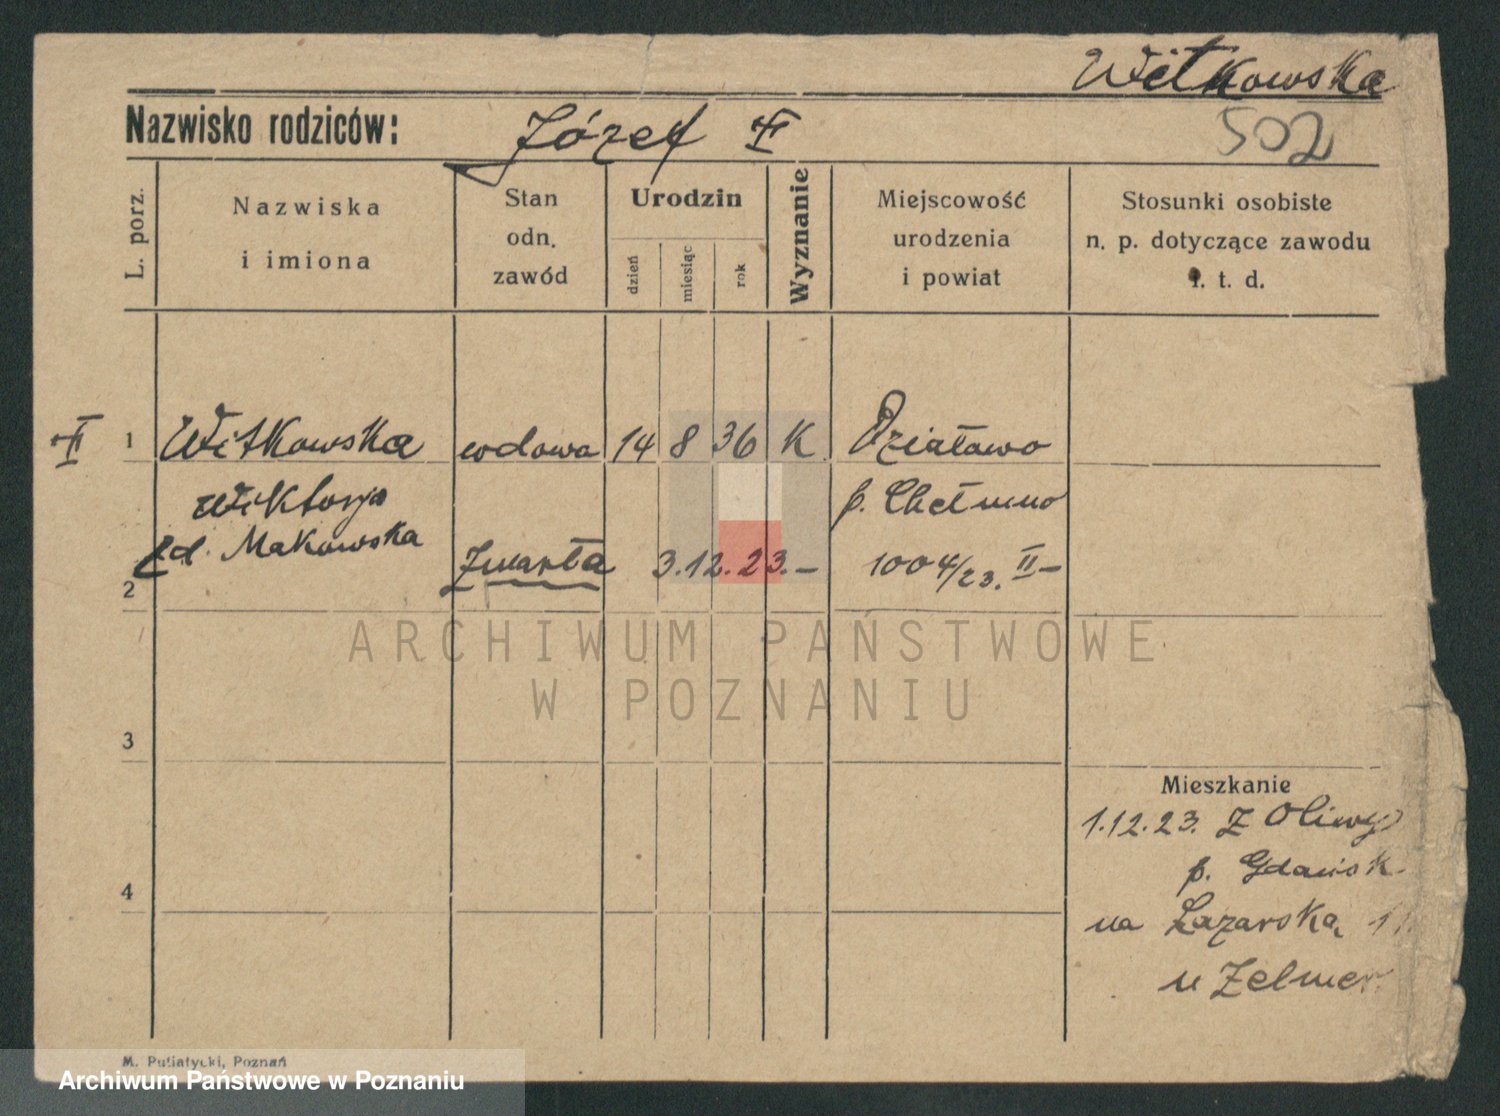 Witkowska
Nazwisko rodziców: Józef
502
L. porz.
Nazwiska
i imiona
Stan
odn.
zawód
Urodzin
dzień
miesiąc
rok
Wyznanie
Miejscowość
urodzenia
i powiat
Stosunki osobiste
n. p. dotyczące zawodu
i. t. d.
1 Witkowska wdowa 14 8 36 K. Działowo
Wiktorja p. Chełmno
Makowska
2 Zmarła 3.12.23.– 1004/23. II–
ARCHIWUM PAŃSTWOWE
W POZNANIU
3
Mieszkanie
1.12.23. z Oliwy
p. Gdańsk.
4
na Łazarską
u Zelmer
M. Putiatycki, Poznań
Archiwum Państwowe w Poznaniu